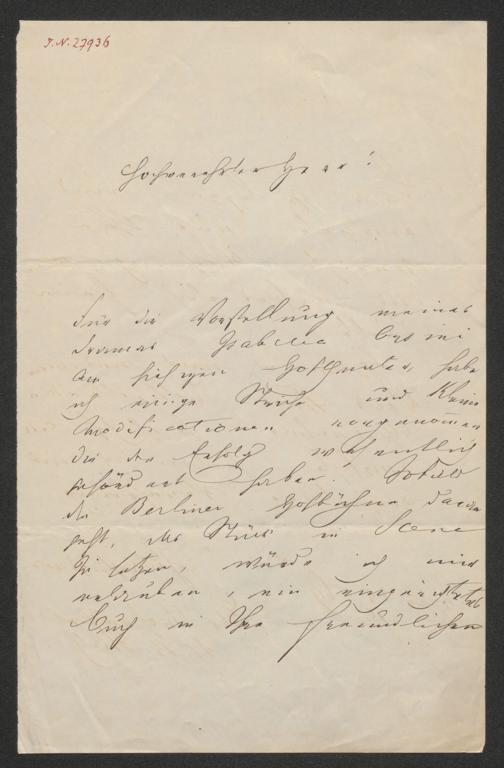 I.N. 27936
Hochverehrter Herr!
Für die Vorstellung meines
Dramas Isabella Orsini
am hiesigen Hoftheater, habe
ich einige Striche und kleine
Modificationen vorgenommen
die den Erfolg wesentlich
gefördert haben! Sobald
die Berliner Hofbühne daran
geht, das Stück in Scene
zu setzen, würde ich mir
erlauben, ein eingerichtetes
Buch in Ihre freundlichen